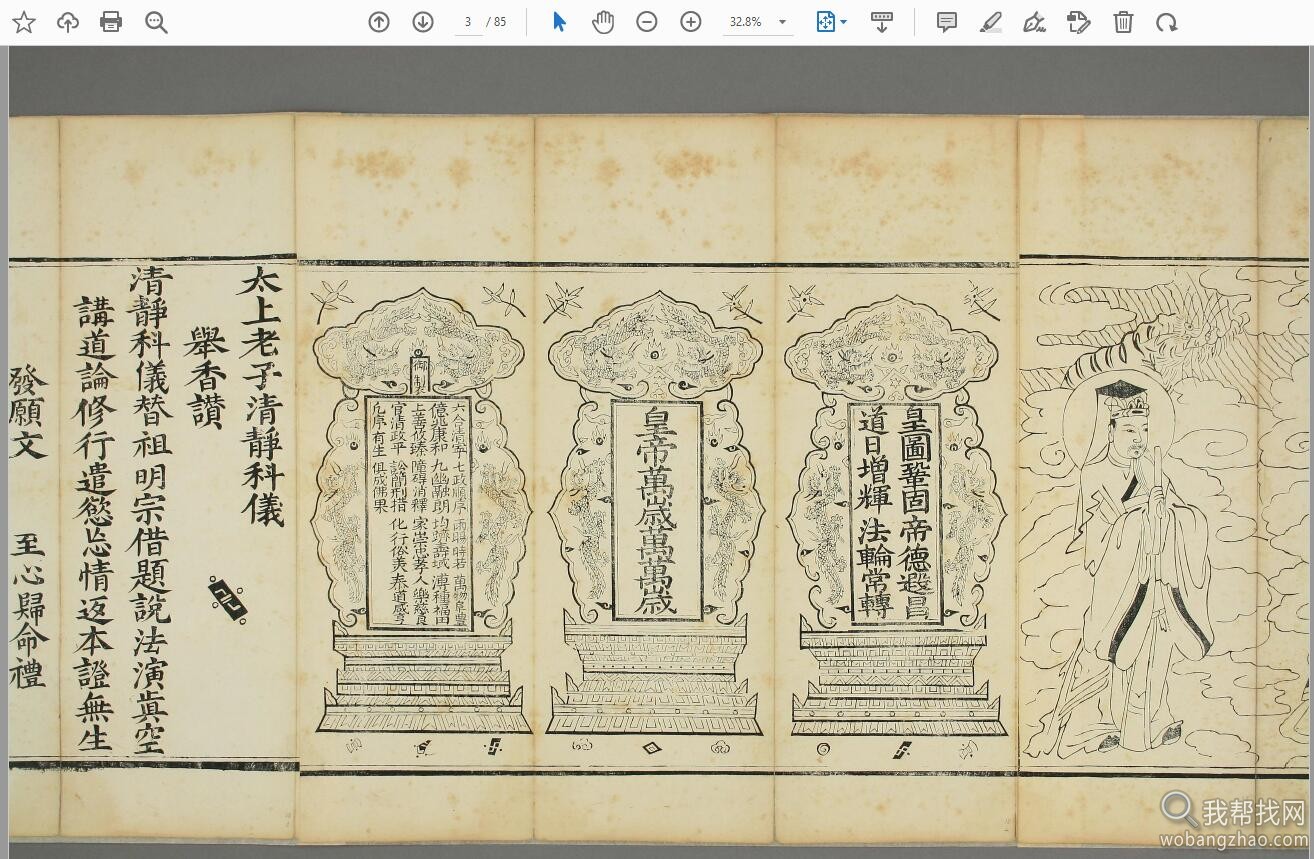 3 / 85
32.8%
皇圖鞏固 帝德遐昌
道日增輝 法輪常轉
皇帝萬歲萬萬歲
御製
六合清寧 七政順序 雨暘時若 萬物阜豐
億兆康和 九幽融朗 均躋壽域 溥種福田
上善攸臻 障礙消釋 家崇忠孝 人樂慈良
官清政平 訟簡刑措 化行俗美 泰道咸亨
凡厥有生 俱成佛果
太上老子清靜科儀
舉香讚
清靜科儀替祖明宗借題說法演眞空
講道論修行遣慾忘情返本證無生
發願文 至心歸命禮
我帮找网
wobangzhao.com